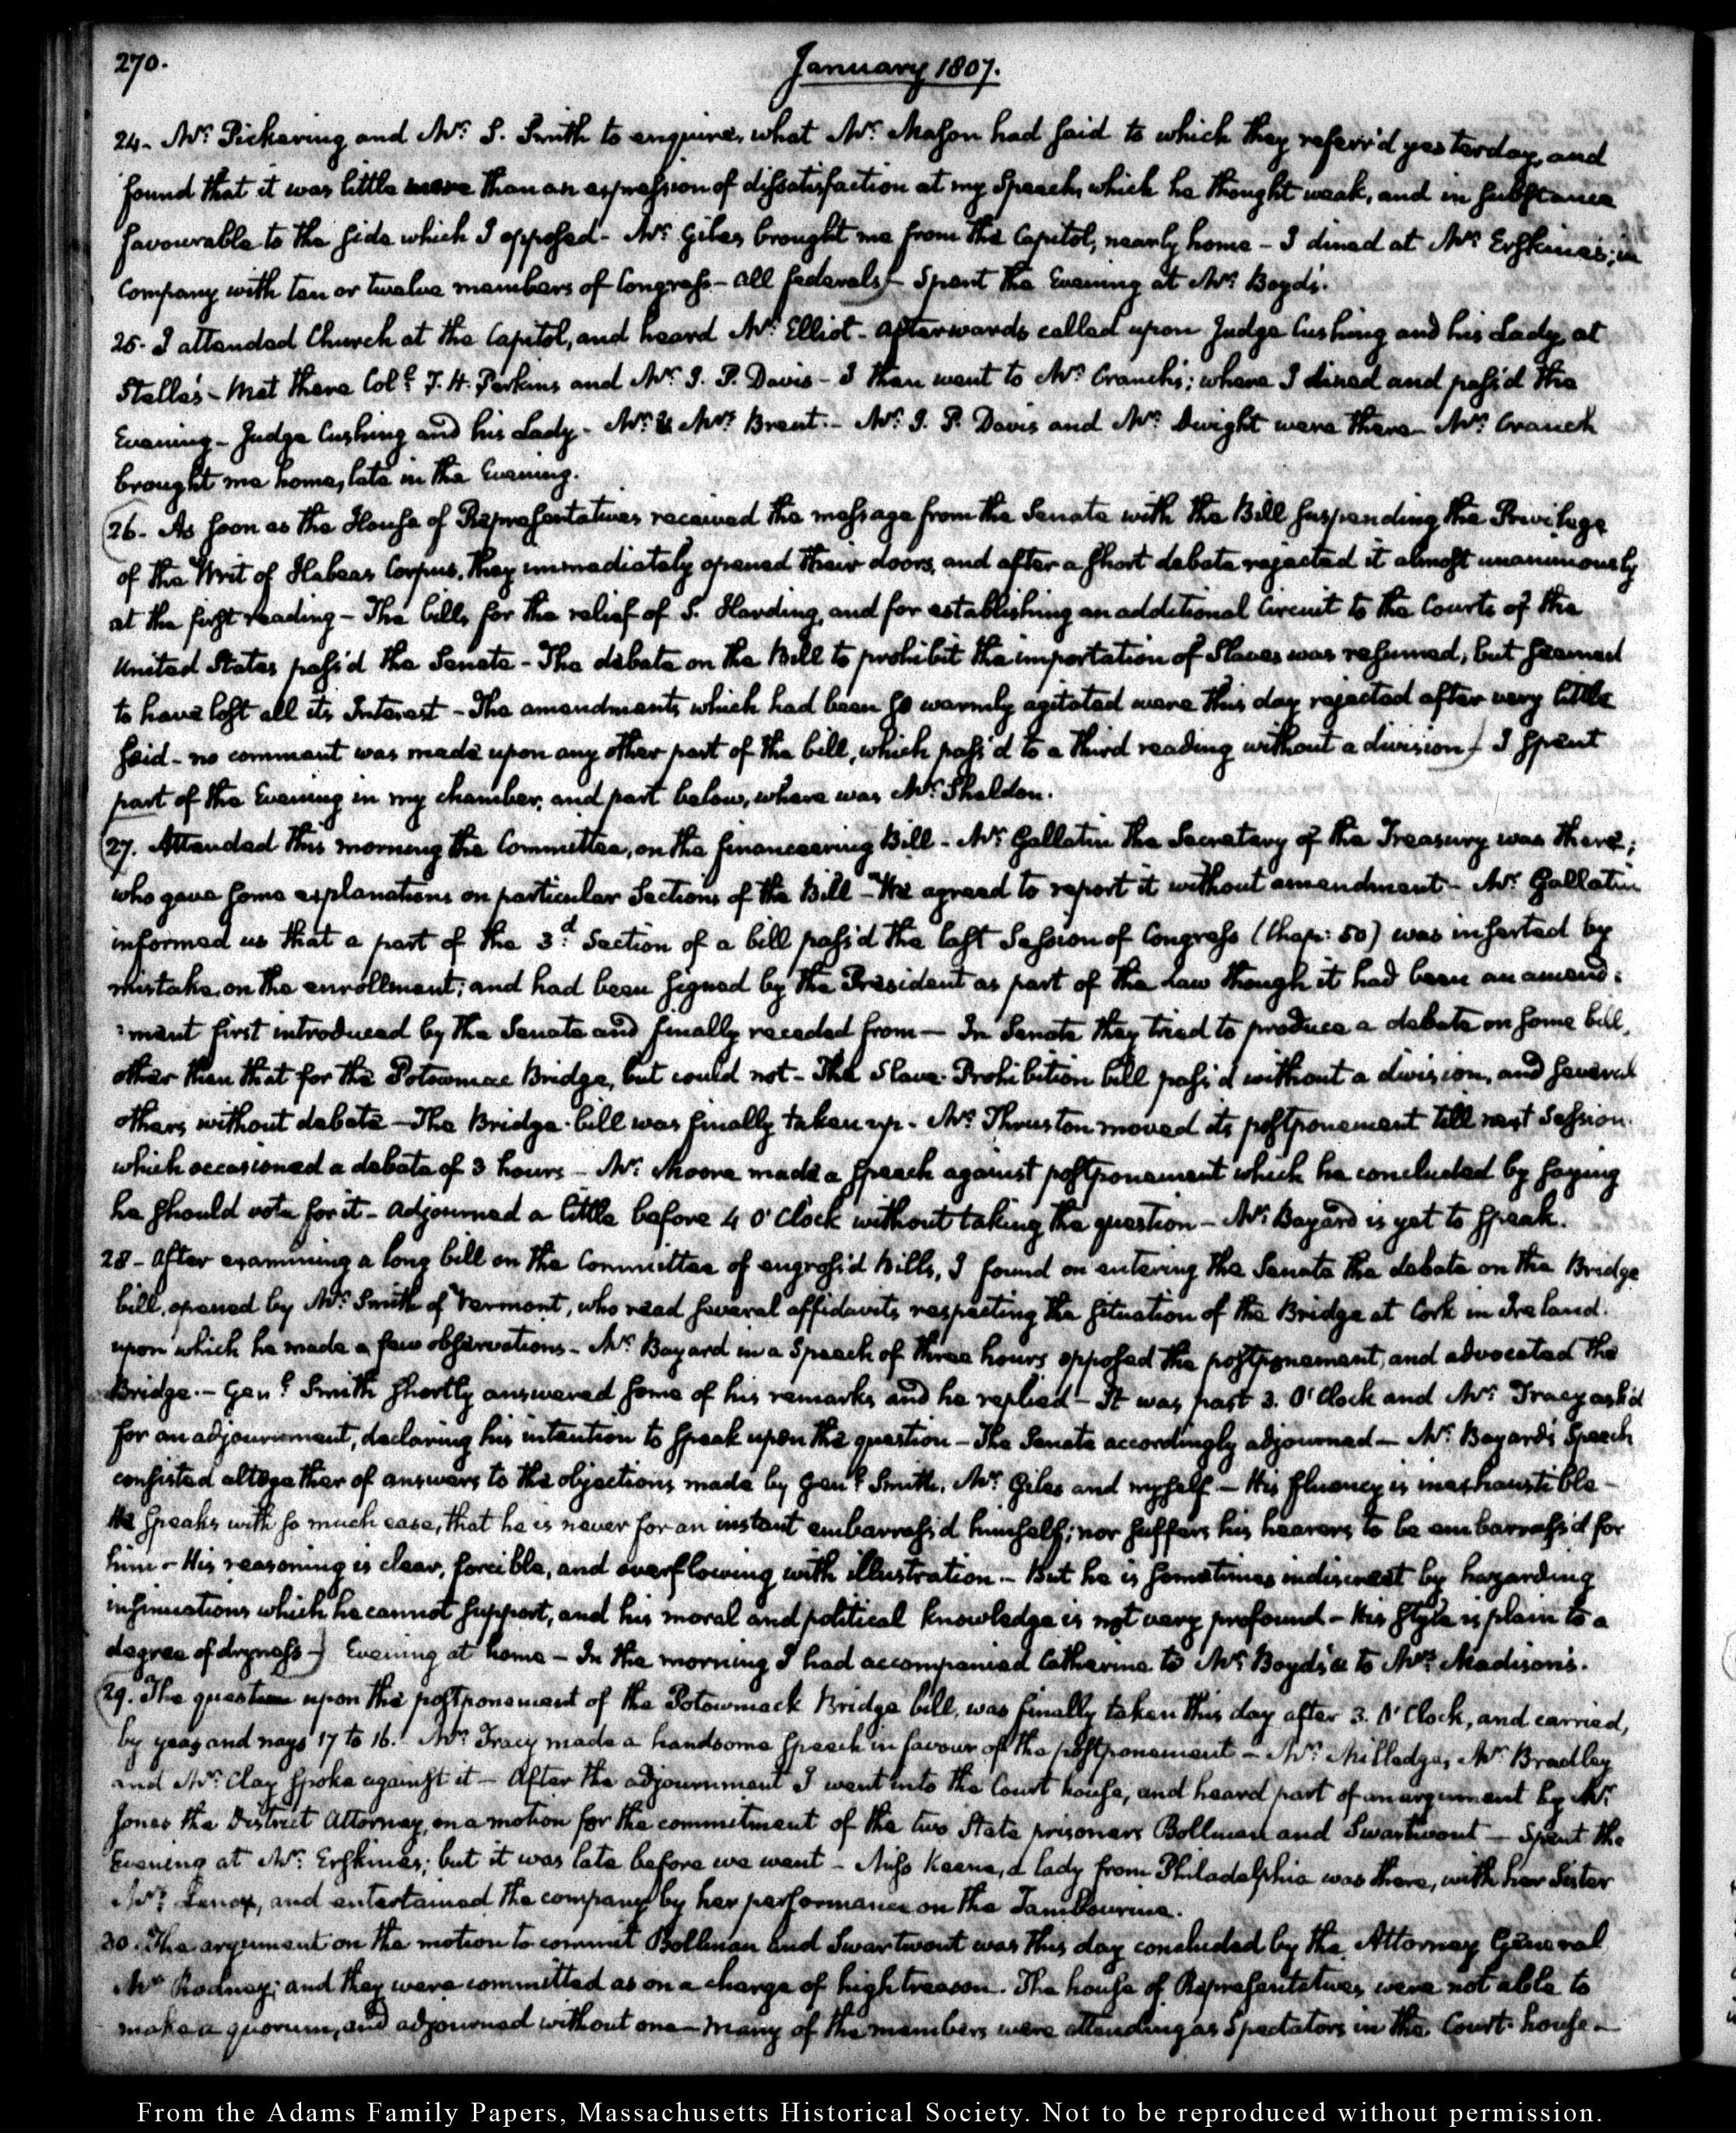 270.
January 1807.
24- Mr: Pickering and Mr: S. Smith to enquire, what Mr: Mason had said to which they referr'd yesterday, and
found that it was little more than an expression of dissatisfaction at my Speech, which he thought weak, and in substance
favourable to the side which I opposed- Mr: Giles brought me from the Capitol, nearly home - I dined at Mr: Erskine's; in
Company with ten or twelve members of Congress- all federals)- Spent the Evening at Mr: Boyd's.
25- I attended Church at the Capitol, and heard Mr: Elliot- afterwards called upon Judge Cushing and his Lady, at
Stelle's- Met there Coll: T. H. Perkins and Mr: I. P. Davis- I then went to Mr: Cranch's; where I dined and pass'd the
Evening- Judge Cushing and his Lady- Mr: & Mrs: Brent.- Mr: I. P. Davis and Mr: Dwight were there- Mr: Cranch
brought me home, late in the Evening.
(26- As soon as the House of Representatives received the message from the Senate with the Bill suspending the Privilege
of the Writ of Habeas Corpus, they immediately opened their doors, and after a short debate rejected it almost unanimously
at the first reading- The bills for the relief of S. Harding, and for establishing an additional Circuit to the Courts of the
United States pass'd the Senate- The debate on the Bill to prohibit the importation of Slaves was resumed; but seemed
to have lost all its Interest- The amendments which had been so warmly agitated were this day rejected after very little
said- no comment was made upon any other part of the bill, which pass'd to a third reading without a division)- I spent
part of the Evening in my chamber, and part below, where was Mr: Sheldon.
(27. Attended this morning the Committee, on the financeering Bill- Mr: Gallatin the Secretary of the Treasury was there;
who gave some explanations on particular Sections of the Bill- We agreed to report it without amendment- Mr: Gallatin
informed us that a part of the 3d: Section of a bill pass'd the last Session of Congress (Chap: 50) was inserted by
mistake, on the enrollment; and had been signed by the President as part of the Law though it had been an amend:
:ment first introduced by the Senate and finally receded from- In Senate they tried to produce a debate on some bill,
other than that for the Potowmac Bridge, but could not- The Slave-Prohibition bill pass'd without a division, and several
others without debate-The Bridge-bill was finally taken up- Mr: Thruston moved its postponement till next Session.
which occasioned a debate of 3 hours- Mr: Moore made a speech against postponement which he concluded by saying
he should vote for it- adjourned a little before 4 O'Clock without taking the question- Mr: Bayard is yet to speak.
28- After examining a long bill on the Committee of engross'd Bills, I found on entering the Senate the debate on the Bridge
bill, opened by Mr: Smith of Vermont, who read several affidavits respecting the situation of the Bridge at Cork in Ireland.
upon which he made a few observations- Mr: Bayard in a Speech of three hours opposed the postponement, and advocated the
Bridge.- Genl: Smith shortly answered some of his remarks and he replied- It was past 3. O'Clock and Mr: Tracy ask'd
for an adjournment, declaring his intention to speak upon the question- The Senate accordingly adjourned- Mr: Bayard's Speech
consisted altogether of answers to the objections made by Genl: Smith, Mr: Giles and myself- His fluency is inexhaustible-
He speaks with so much ease, that he is never for an instant embarrass'd himself; nor suffers his hearers to be embarrass'd for
him- His reasoning is clear, forcible, and overflowing with illustration.- But he is sometimes indiscreet by hazarding
insinuations which he cannot support, and his moral and political knowledge is not very profound- His style is plain to a
degree of dryness-) Evening at home- In the morning I had accompanied Catherine to Mr: Boyd's & to Mrs: Madison's.
(29. The question upon the postponement of the Potowmack Bridge bill, was finally taken this day after 3. O'Clock, and carried,
by yeas and nays 17 to 16. Mr: Tracy made a handsome speech in favour of the postponement- Mr: Milledge, Mr: Bradley
and Mr: Clay spoke against it- After the adjournment I went into the Court house, and heard part of an argument by Mr:
Jones the District Attorney, on a motion for the commitment of the two State prisoners Bollman and Swartwout- Spent the
Evening at Mr: Erskine's; but it was late before we went- Miss Keene, a lady from Philadelphia was there, with her Sister
Mrs: Lenox, and entertained the company by her performance on the Tambourine.
30. The argument on the motion to commit Bollman and Swartwout was this day concluded by the Attorney General
Mr: Rodney; and they were committed as on a charge of high treason. The house of Representatives were not able to
make a quorum, and adjourned without one- many of the members were attending as Spectators in the Court-house-
From the Adams Family Papers, Massachusetts Historical Society. Not to be reproduced without permission.